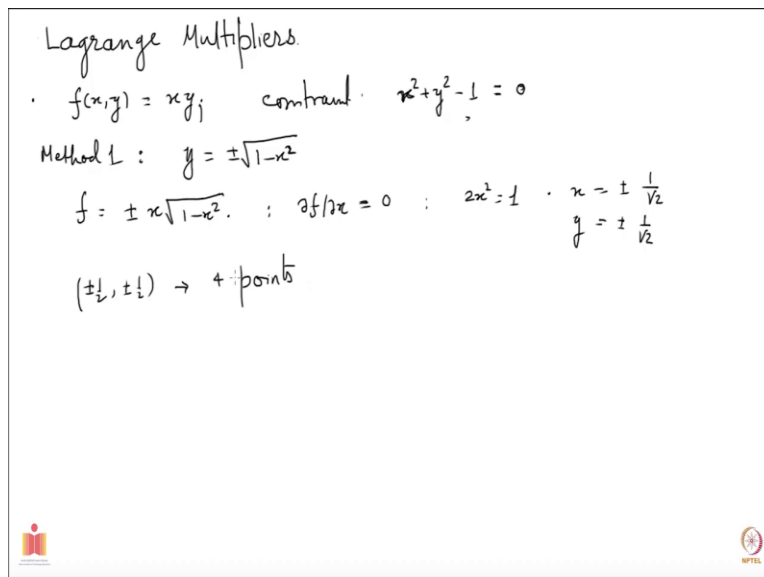 Lagrange Multipliers.
. f(x,y) = xy; contraint. x²+y²-1 = 0
Method 1 : y = ±√1-x²
f = ± x√1-x². : ∂f/∂x = 0 : 2x²=1 . x = ± 1/√2
y = ± 1/√2
(±1/2, ±1/2) → 4 points
NPTEL